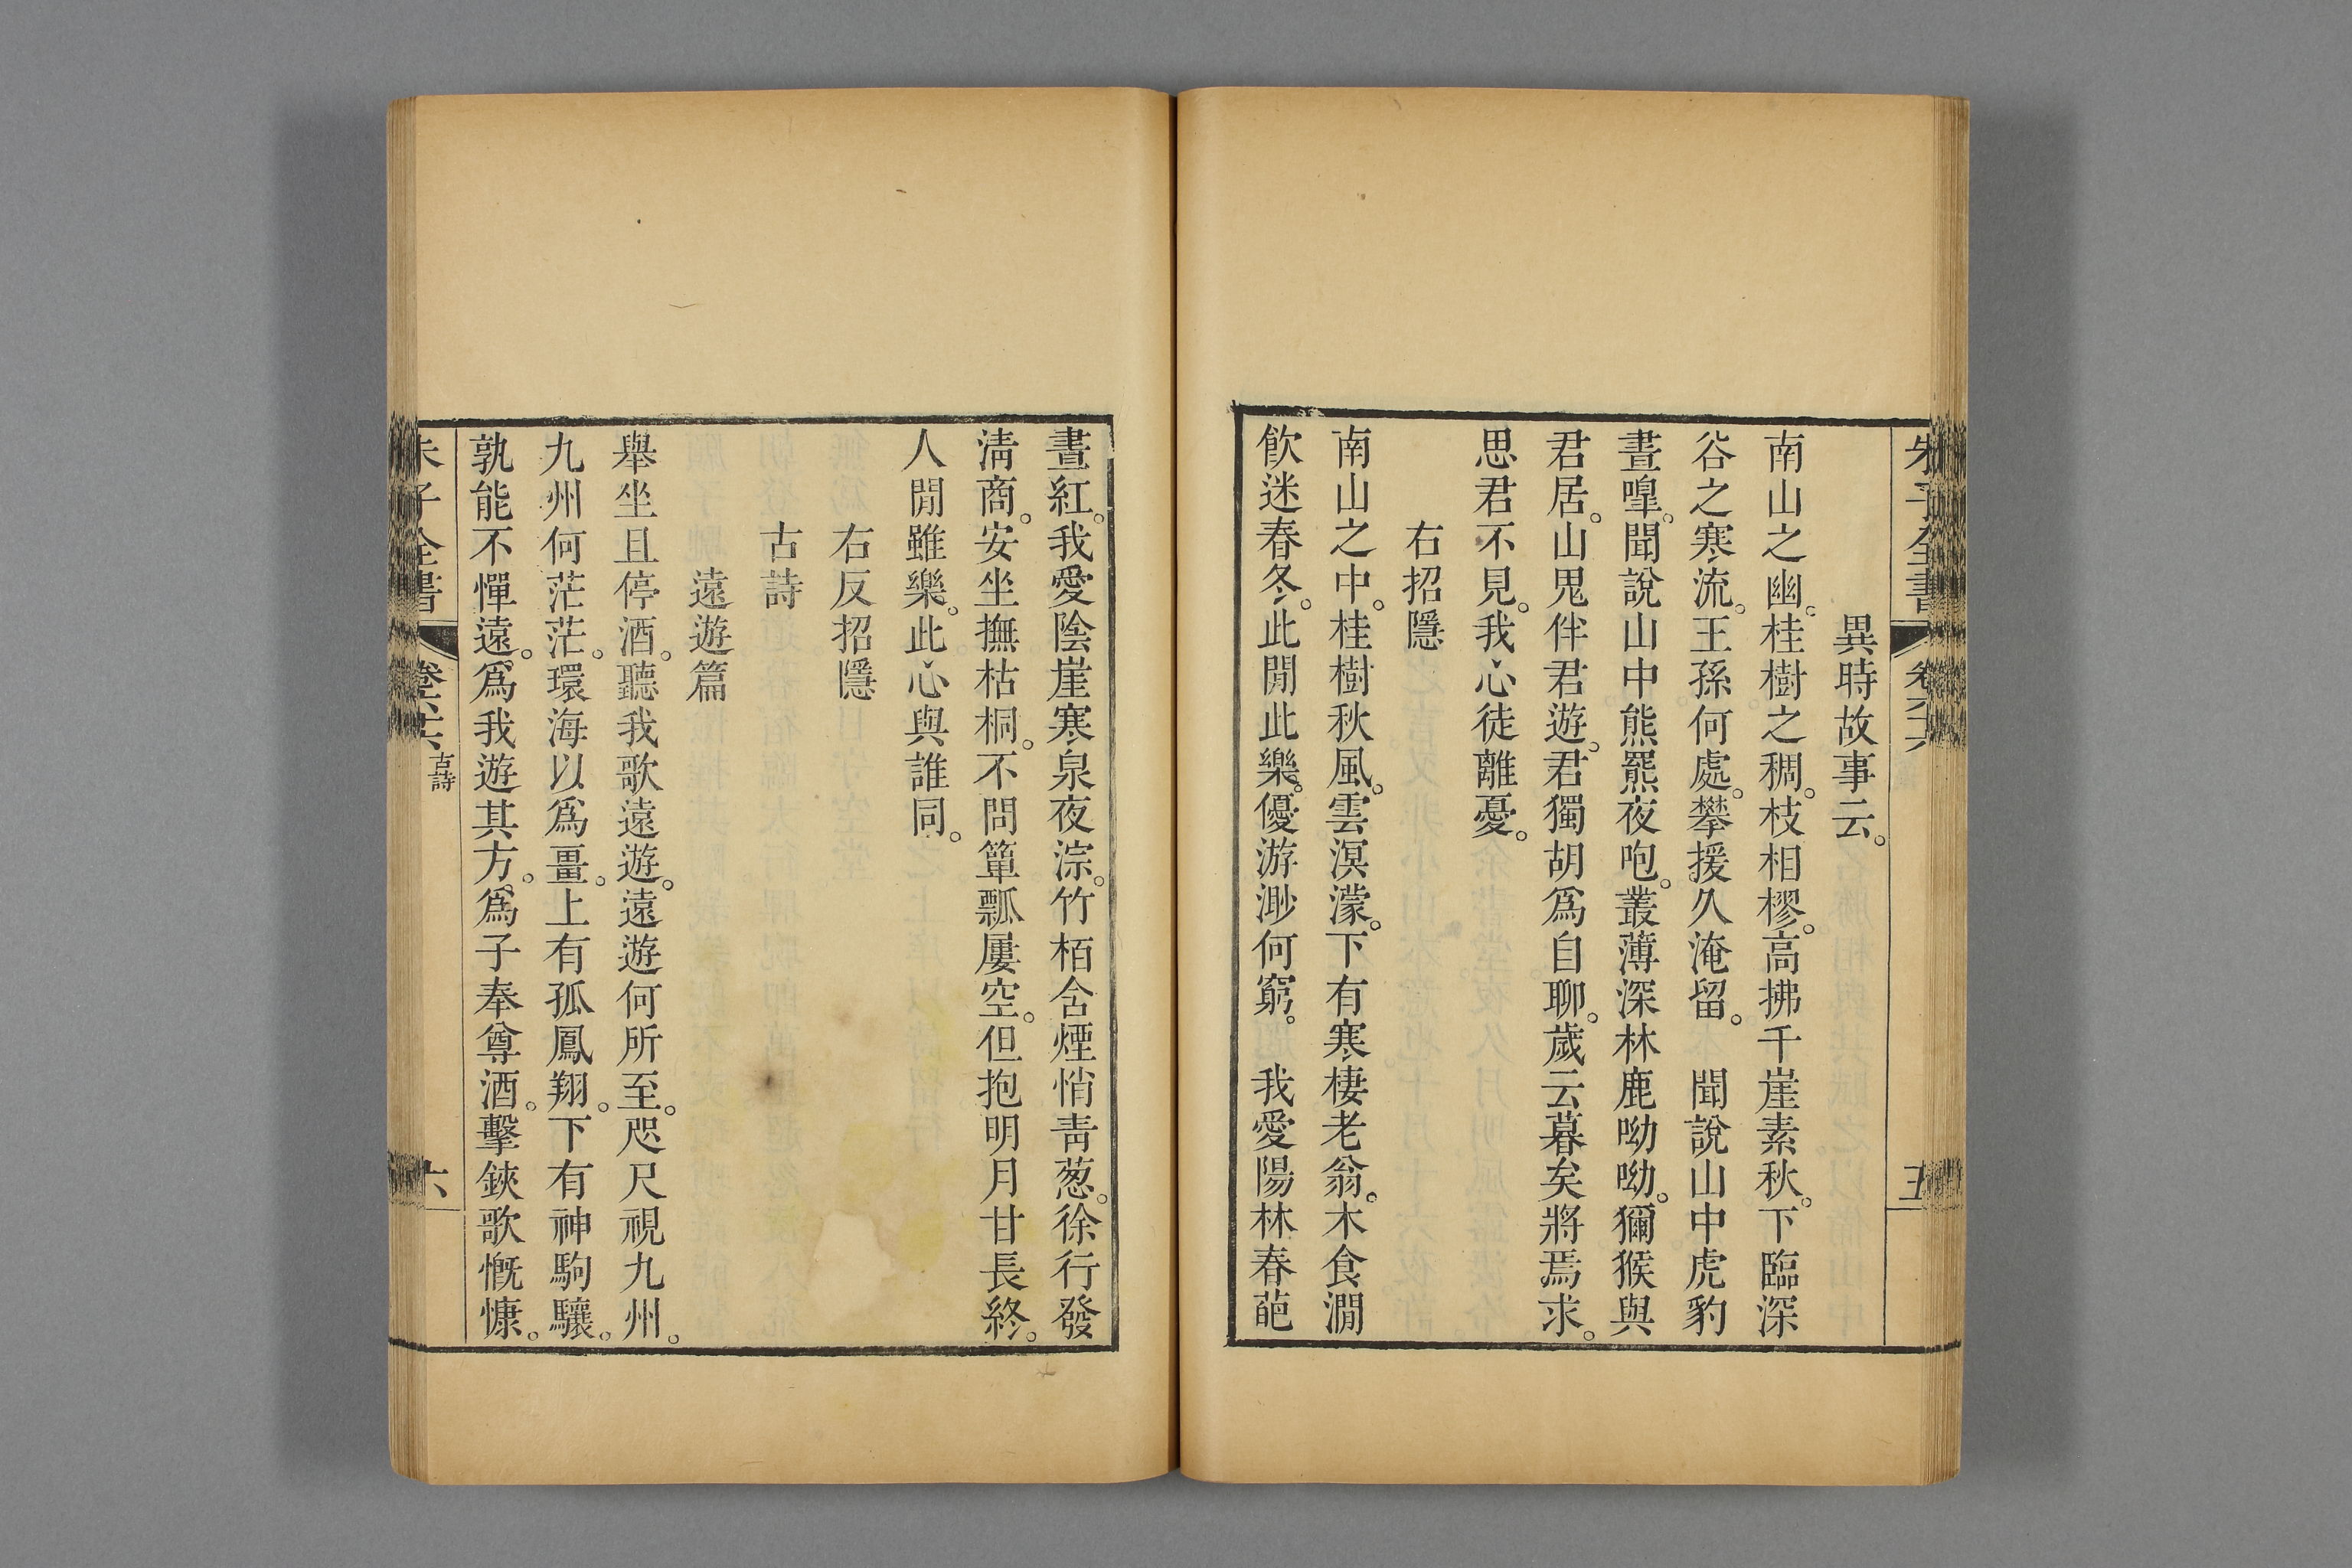 朱子全書 卷六十六 五
異時故事云。
南山之幽。桂樹之稠。枝相樛。高拂千崖素秋。下臨深
谷之寒流。王孫何處。攀援久淹留。 聞說山中虎豹
晝嘷。聞說山中熊羆夜咆。叢薄深林鹿呦呦。獮猴與
君居。山鬼伴君遊。君獨胡爲自聊。歲云暮矣將焉求。
思君不見。我心徒離憂。
右招隱
南山之中。桂樹秋風。雲溟濛。下有寒棲老翁。木食澗
飮迷春冬。此閒此樂。優游渺何窮。 我愛陽林春葩
晝紅。我愛陰崖寒泉夜淙。竹栢含煙悄靑葱。徐行發
淸商。安坐撫枯桐。不問簞瓢屢空。但抱明月甘長終。
人閒雖樂。此心與誰同。
右反招隱
古詩
遠遊篇
舉坐且停酒。聽我歌遠遊。遠遊何所至。咫尺視九州。
九州何茫茫。環海以爲畺。上有孤鳳翔。下有神駒驤。
孰能不憚遠。爲我遊其方。爲子奉尊酒。擊鋏歌慨慷。
朱子全書 卷六十六 古詩 六